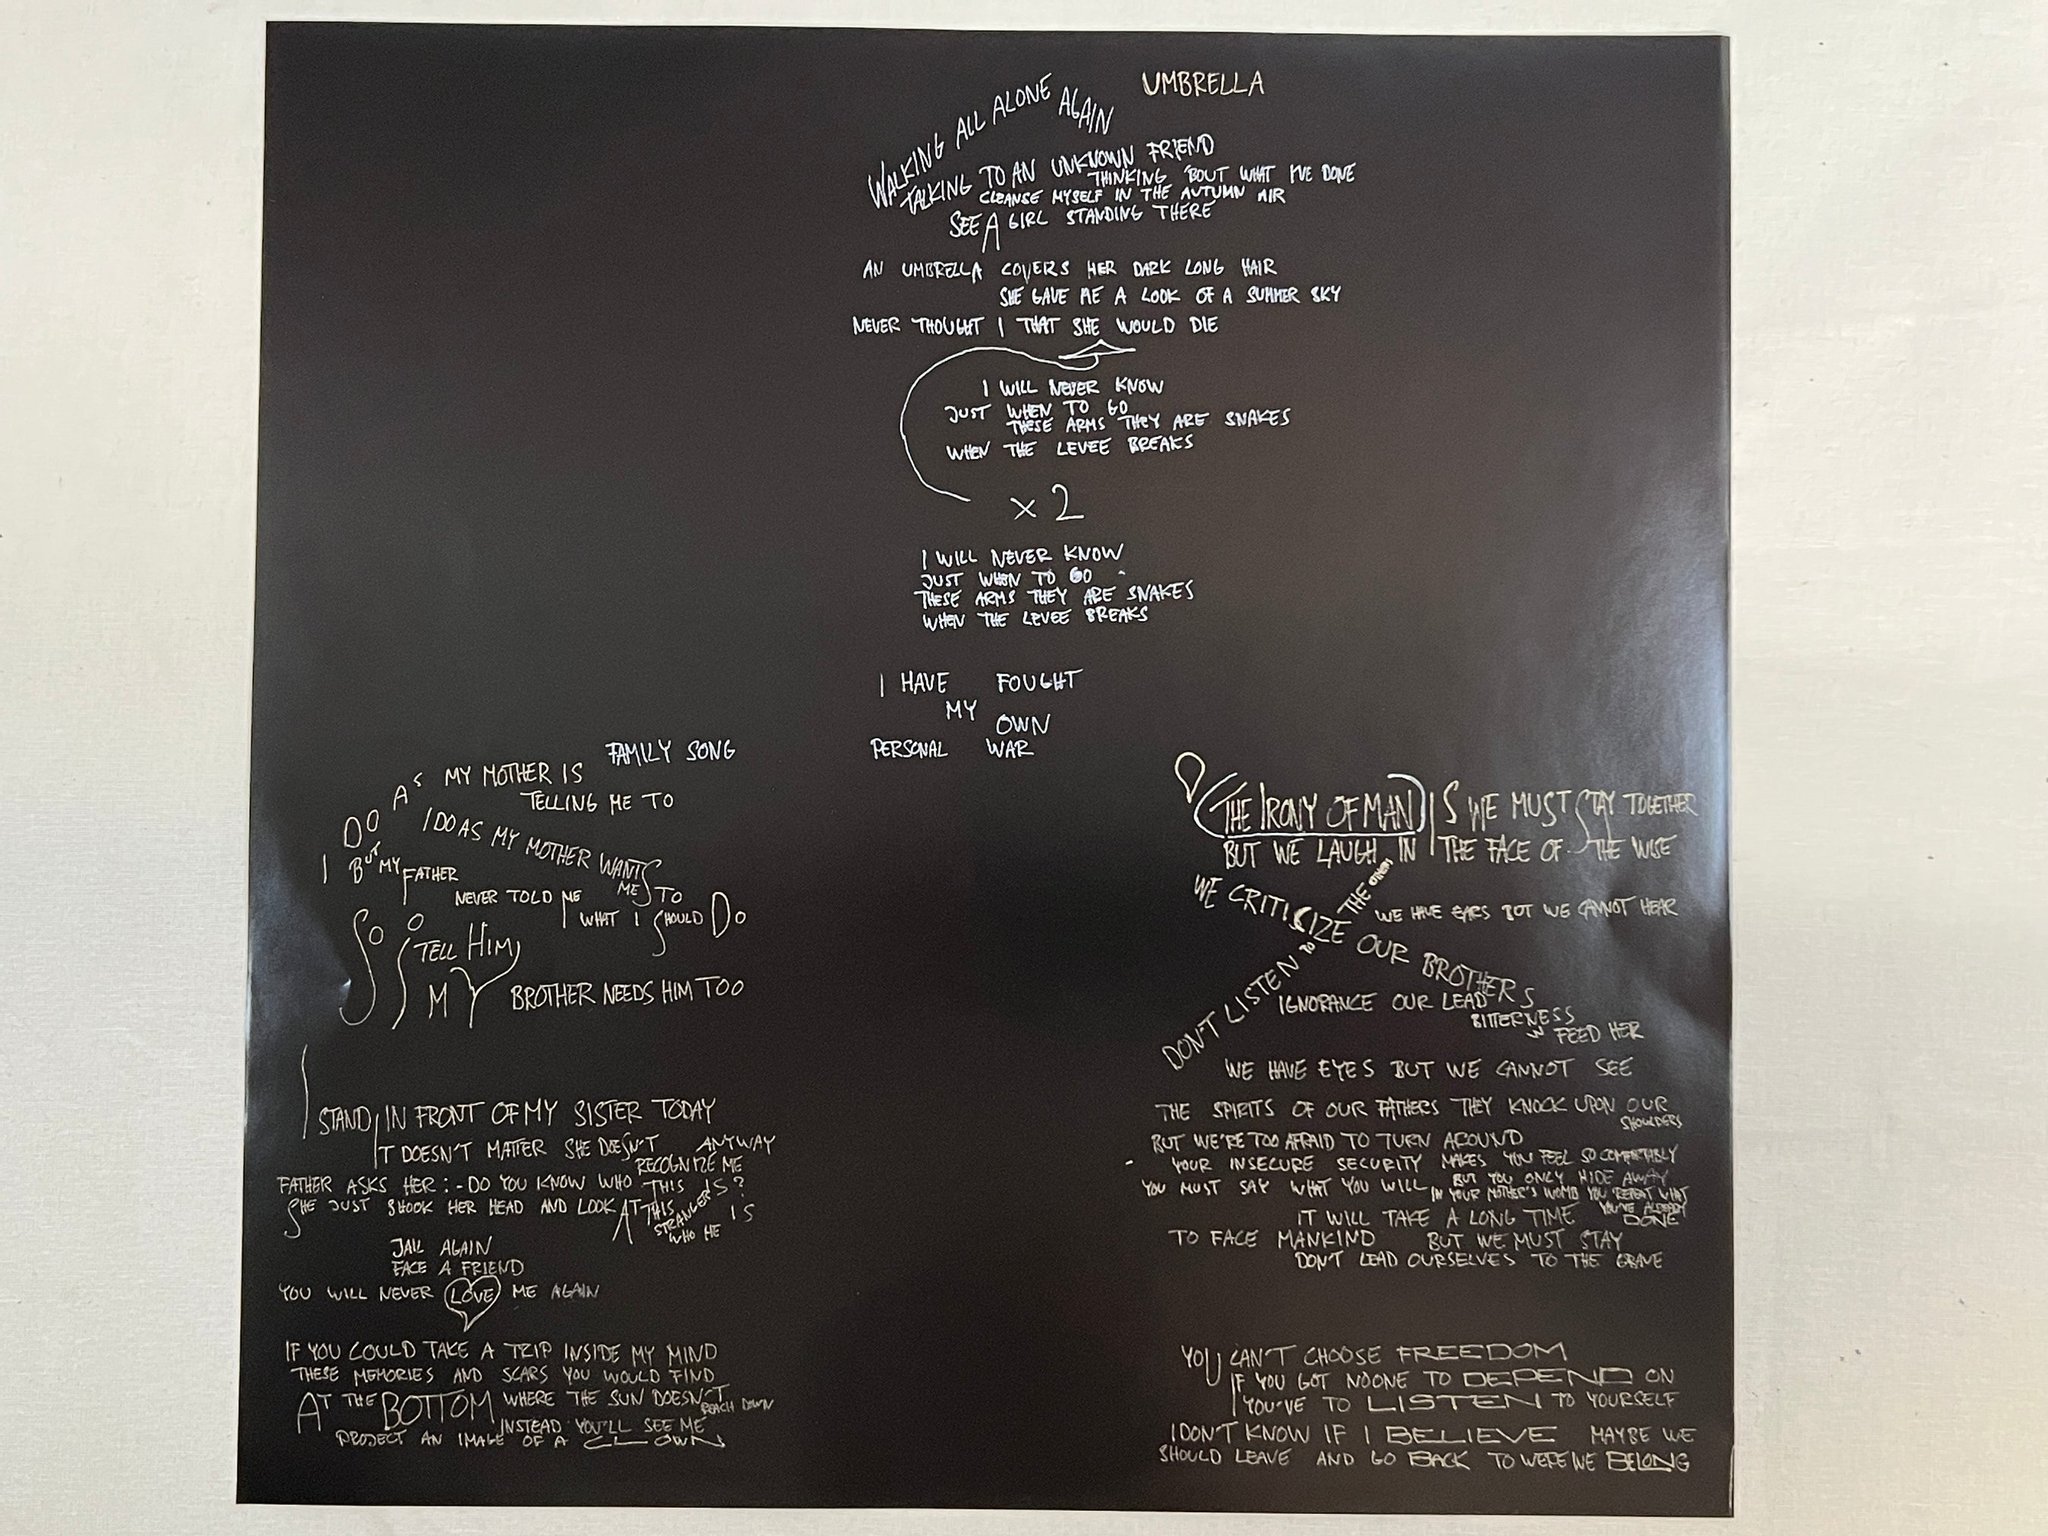 UMBRELLA
WALKING ALL ALONE AGAIN
TALKING TO AN UNKNOWN FRIEND
THINKING 'BOUT WHAT I'VE DONE
CLEANSE MYSELF IN THE AUTUMN AIR
SEE A GIRL STANDING THERE
AN UMBRELLA COVERS HER DARK LONG HAIR
SHE GAVE ME A LOOK OF A SUMMER SKY
NEVER THOUGHT I THAT SHE WOULD DIE
I WILL NEVER KNOW
JUST WHEN TO GO
THESE ARMS THEY ARE SNAKES
WHEN THE LEVEE BREAKS
x 2
I WILL NEVER KNOW
JUST WHEN TO GO
THESE ARMS THEY ARE SNAKES
WHEN THE LEVEE BREAKS
I HAVE FOUGHT
MY
OWN
PERSONAL WAR
FAMILY SONG
I DO AS MY MOTHER IS
TELLING ME TO
I DO AS MY MOTHER WANTS
ME TO
BUT MY FATHER
NEVER TOLD ME
WHAT I SHOULD DO
SO I TELL HIM
MY BROTHER NEEDS HIM TOO
I STAND IN FRONT OF MY SISTER TODAY
IT DOESN'T MATTER SHE DOESN'T ANYWAY
RECOGNIZE ME
FATHER ASKS HER: - DO YOU KNOW WHO THIS IS?
SHE JUST SHOOK HER HEAD AND LOOK AT THIS
STRANGER IS
WHO HE
JAIL AGAIN
FACE A FRIEND
YOU WILL NEVER LOVE ME AGAIN
IF YOU COULD TAKE A TRIP INSIDE MY MIND
THESE MEMORIES AND SCARS YOU WOULD FIND
AT THE BOTTOM WHERE THE SUN DOESN'T
REACH DOWN
INSTEAD YOU'LL SEE ME
PROJECT AN IMAGE OF A CLOWN
THE IRONY OF MAN IS WE MUST STAY TOGETHER
BUT WE LAUGH IN THE FACE OF THE WISE
WE CRITISIZE OUR BROTHERS
DON'T LISTEN TO THE OTHERS
WE HAVE EARS BUT WE CANNOT HEAR
IGNORANCE OUR LEAD
BITTERNESS
FEED HER
WE HAVE EYES BUT WE CANNOT SEE
THE SPIRITS OF OUR FATHERS THEY KNOCK UPON OUR
SHOULDERS
BUT WE'RE TOO AFRAID TO TURN AROUND
YOUR INSECURE SECURITY MAKES YOU FEEL SO COMFORTABLY
BUT YOU ONLY HIDE AWAY
YOU MUST SAY WHAT YOU WILL IN YOUR MOTHER'S WOMB YOU REPEAT WHAT
YOU'VE ALREADY
IT WILL TAKE A LONG TIME DONE
TO FACE MANKIND BUT WE MUST STAY
DON'T LEAD OURSELVES TO THE GRAVE
YOU CAN'T CHOOSE FREEDOM
IF YOU GOT NOONE TO DEPEND ON
YOU'VE TO LISTEN TO YOURSELF
I DON'T KNOW IF I BELIEVE MAYBE WE
SHOULD LEAVE AND GO BACK TO WERE WE BELONG